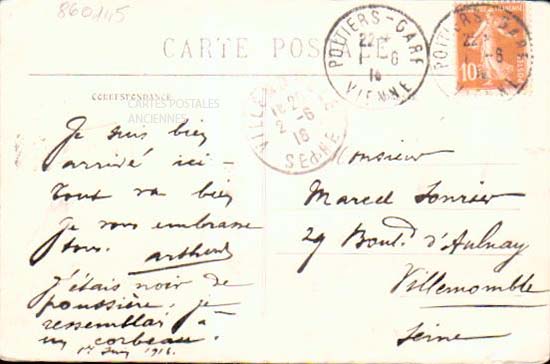 860145
CARTE POSTALE
CORRESPONDANCE
CARTES POSTALES
ANCIENNES
POITIERS - GARE
22
1 - 6
16
VIENNE
POITIERS - GARE
22
-6
16
10
VILLE
2 -6
16
SEINE
Je suis bien
arrivé ici -
Tout va bien
je vous embrasse
tous.
J'étais noir de
poussière, je
ressemblais à
un corbeau.
1er Juin 1916.
Monsieur
Marcel
29 Boul.d d'Aulnay
Villemomble
Seine